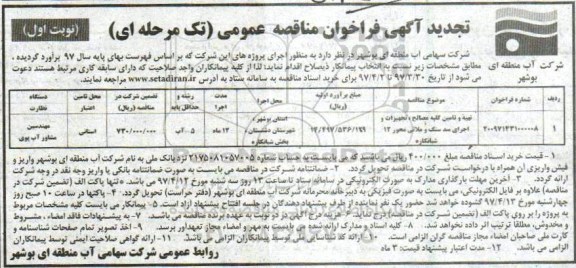 تجدید آگهی فراخوان مناقصه عمومی (تک مرحله ای)
(نوبت اول)
شرکت آب منطقه ای بوشهر
شرکت سهامی آب منطقه ای بوشهر در نظر دارد به منظور اجرای پروژه های این شرکت که بر اساس فهرست بهای پایه سال ۹۷ برآورد گردیده ،
مطابق مشخصات زیر نسبت به انتخاب پیمانکار ذیصلاح اقدام نماید؛ لذا از کلیه پیمانکاران واجد صلاحیت که دارای سابقه کاری مرتبط هستند دعوت
می شود از تاریخ ۹۷/۳/۳۰ تا ۹۷/۴/۲ برای خرید اسناد مناقصه به سامانه ستاد به آدرس www.setadiran.ir مراجعه نمایند.
ردیف شماره فراخوان موضوع مناقصه مبلغ برآورد اولیه (ریال) محل اجرا مدت اجرا رشته و حداقل پایه تضمین شرکت در مناقصه (ریال) محل تامین اعتبار دستگاه نظارت
۱ ۲۰۰۹۷۱۴۳۱۰۰۰۰۰۸ تهیه و تامین کلیه مصالح و تجهیزات و اجرای سد سنگ و ملاتی محور ۱۲ شبانکاره ۱۴/۴۹۷/۵۳۶/۱۹۹ استان بوشهر، شهرستان دشتستان، بخش شبانکاره ۱۲ ماه ۵ - آب ۷۳۰/۰۰۰/۰۰۰ استانی مهندسین مشاور آب پوی
۱- قیمت خرید اسناد مناقصه مبلغ ۲۰۰/۰۰۰ ریال می باشد که می بایست به حساب شماره ۲۱۷۵۰۸۱۰۵۷۰۰۵ نزد بانک ملی به نام شرکت آب منطقه ای بوشهر واریز و
فیش واریزی آن همراه با درخواست شرکت در مناقصه تحویل گردد. ۲- ضمانتنامه شرکت در مناقصه می بایست به صورت ضمانتنامه بانکی یا واریز وجه نقد در وجه شرکت
ارائه گردد. ۳- آخرین مهلت بارگذاری مدارک به صورت الکترونیکی در سامانه ستاد تا ساعت ۱۳ روز سه شنبه مورخ ۹۷/۴/۱۲ می باشد. «تنها پاکت الف (تضمین شرکت در
مناقصه) علاوه بر فایل الکترونیکی، می بایست به صورت فیزیکی به دبیرخانه محرمانه شرکت آب منطقه ای بوشهر (دفتر حراست) تحویل گردد.» ۴- پاکتها در ساعت ۱۰ صبح روز
چهارشنبه مورخ ۹۷/۴/۱۳ گشوده خواهد شد حضور یک نفر نماینده از طرف پیشنهاد دهندگان در جلسه افتتاح پیشنهاد آزاد است. ۵- پیمانکار می بایست کلیه مشخصات مربوط
به پروژه را بر روی پاکت الف (تضمین شرکت در مناقصه) درج نماید. ۶- هزینه درج آگهی در دو نوبت به عهده برنده مناقصه می باشد. ۷- به پیشنهادات فاقد امضاء ، مشروط
و مخدوش، مطلقا ترتیب اثر داده نخواهد شد. ۸- کلیه اسناد و مدارک ارائه شده بایستی به مهر و امضاء مجاز تعهدآور برسد. ۹- اخذ تصویر تمام صفحات شناسنامه و
کارت ملی صاحبان امضاء مجاز مناقصه گران الزامی است. ۱۰- ارائه کد شناسه ملی شرکت پیمانکاران الزامی می باشد. ۱۱- ارائه گواهی صلاحیت ایمنی توسط پیمانکاران
الزامی می باشد. ۱۲- مدت اعتبار پیشنهاد قیمت: ۳ ماه
روابط عمومی شرکت سهامی آب منطقه ای بوشهر